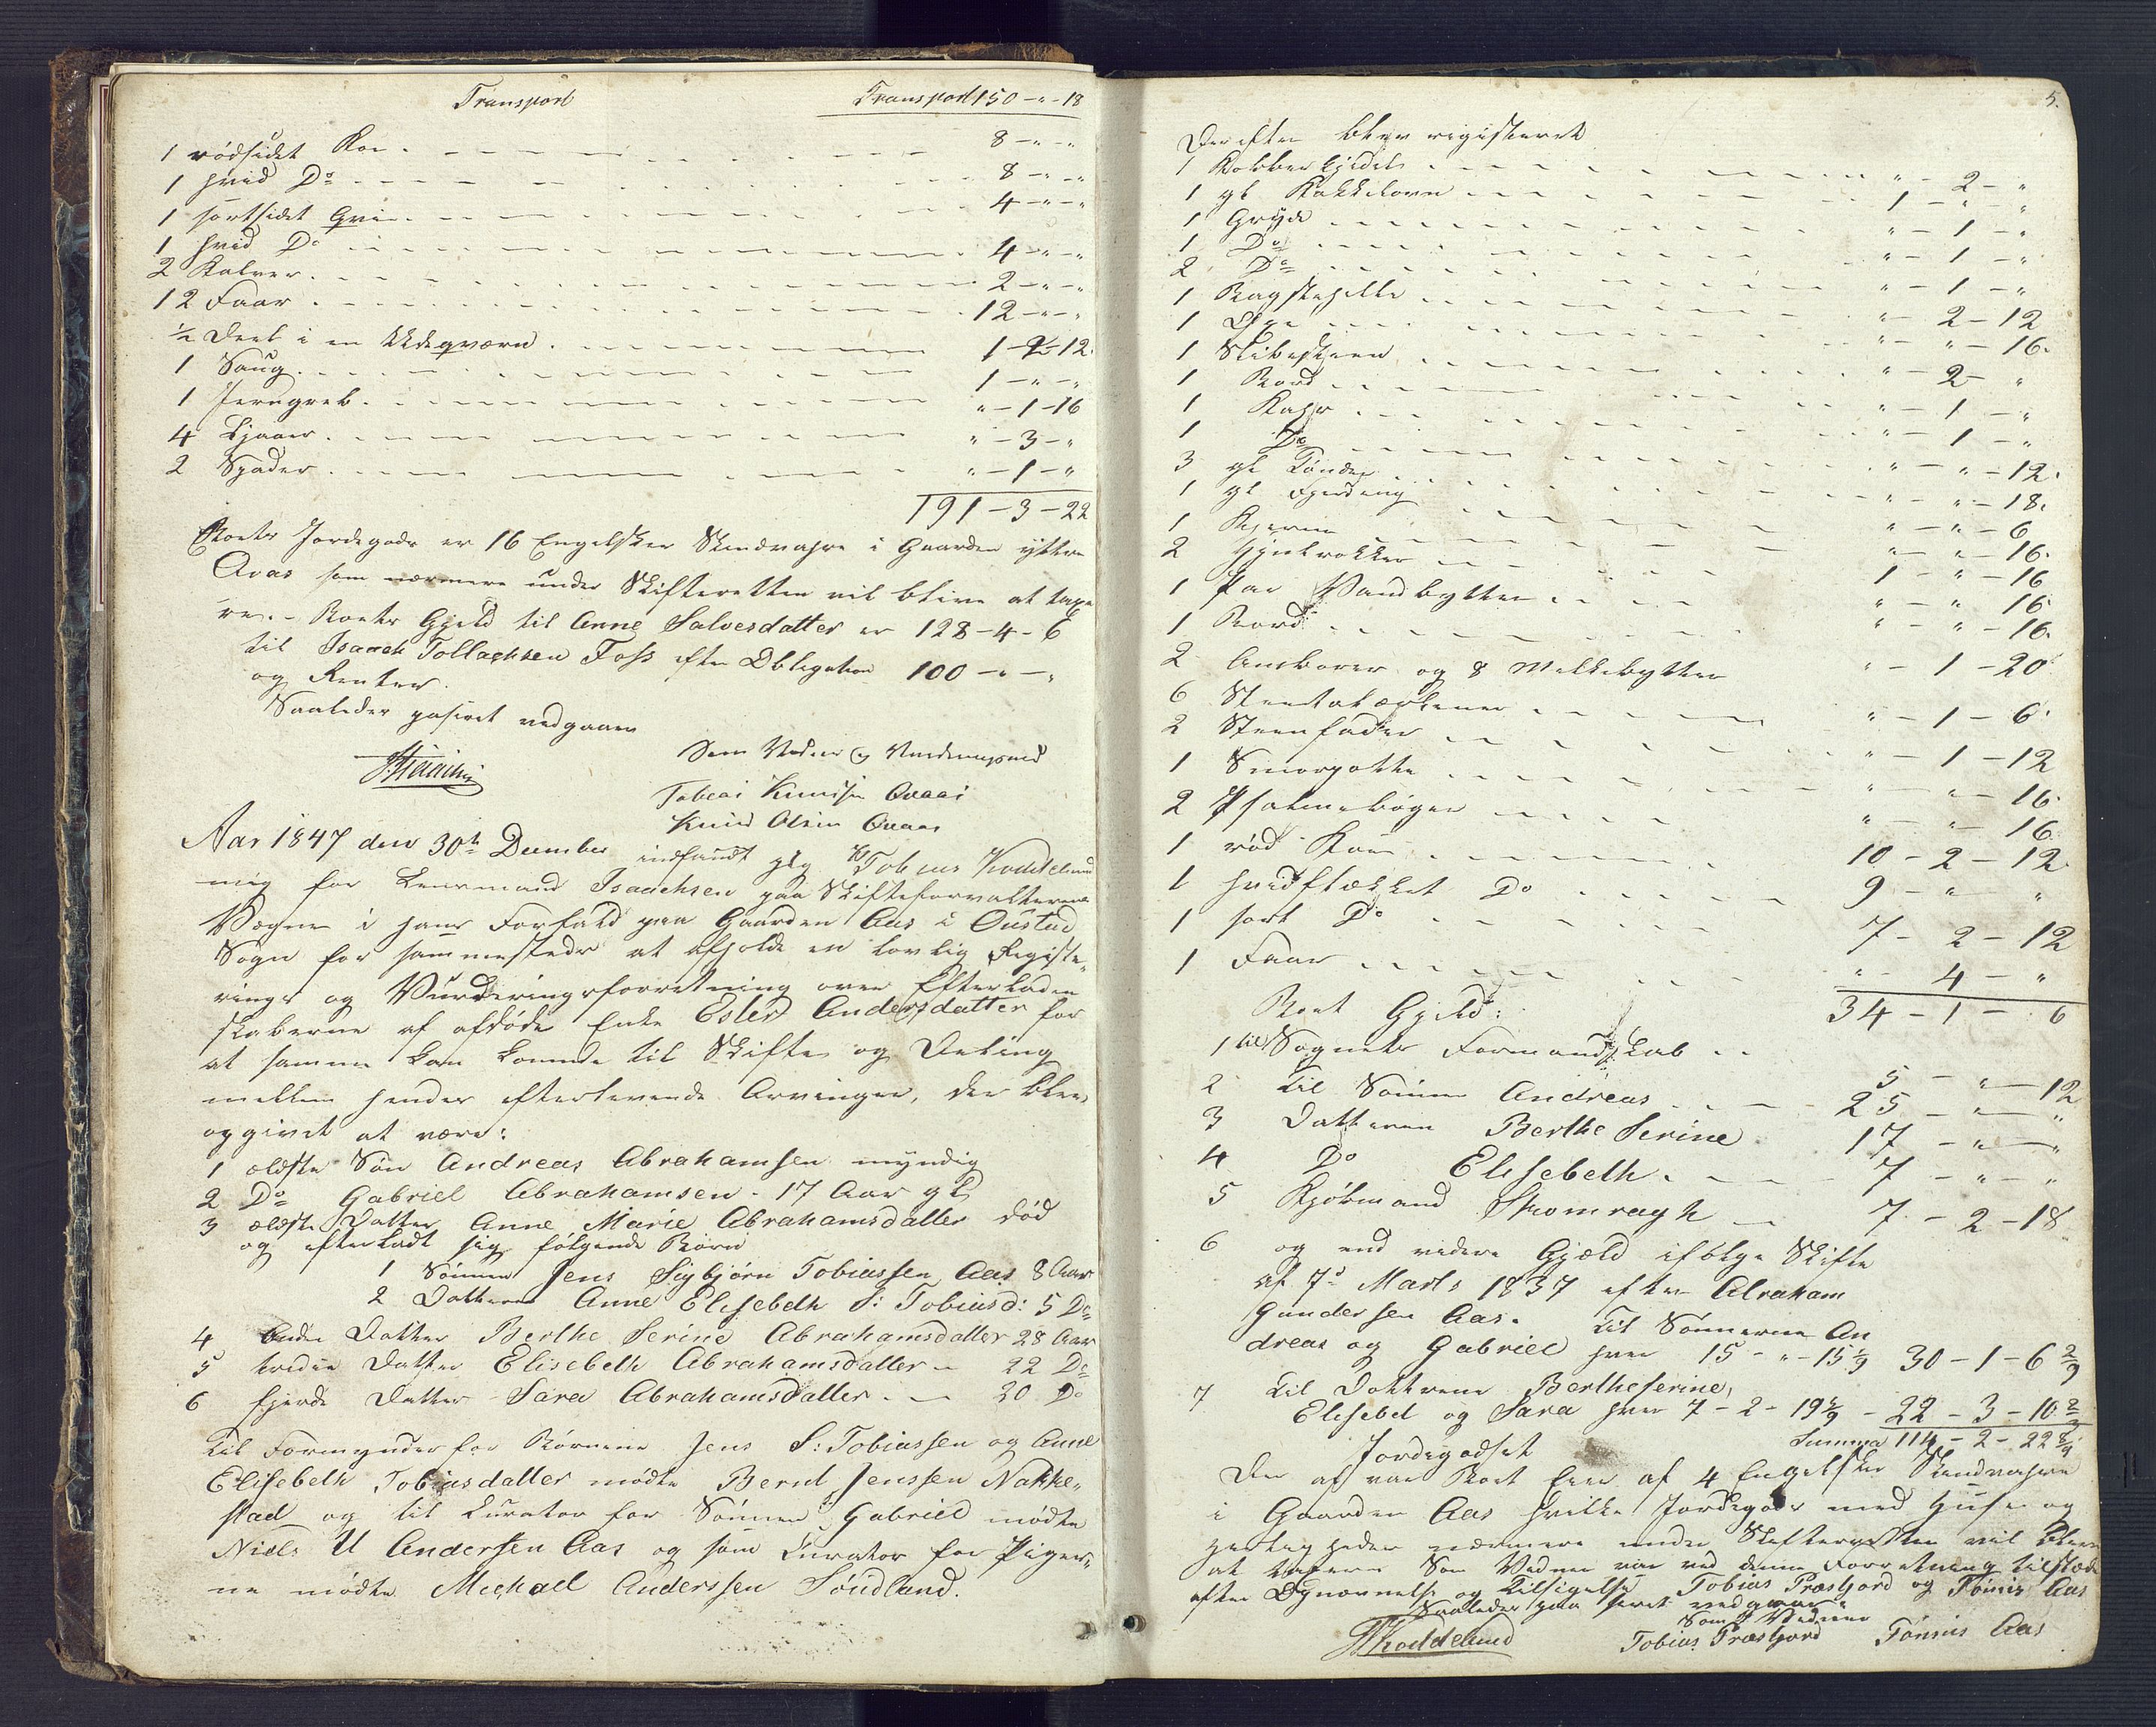 Transport Transport 150 - " - 18
1 rødsidet Koe 8 - " - "
1 hvid Do 8 - " - "
1 sortsidet Qvie 4 - " - "
1 hvid Do 4 - " - "
2 Kalver 2 - " - "
12 Faar 12 - " - "
½ Deel i en Bekqværn 1 - 2 - 12
1 Saug 1 - " - "
1 Jerngreb " - 1 - 16
4 Ljaaer " - 3 - "
2 Spader " - 1 - "
191 - 3 - 22
Boets Jordegods er 16 Engelsker Skindvahre i Gaarden yttre
Avas som nærmere under Skifteretten vil blive at taxe
re. - Boets Gjeld til Anne Salvesdatter er 128 - 4 - 6
til Isaach Tollachsen Foss efter Obligation 100 - " - "
og Renter.
Saaledes passeret vedgaaes
Som Vidner og Vurderingsmænd
Tobias Knudsen Qvaas
Knud Olsen Qvaas
Aar 1847 den 30te December indfandt jeg Tobias Koddelund
mig for Lensmand Isaachsen paa Skifteforvalterens
Vegne i hans Forfald paa Gaarden Aas i Oustad
Sogn for sammesteds at afholde en lovlig Registe-
rings og Vurderingsforretning over Efterladen
skaberne af afdøde Enke Ester Andersdatter for
at samme kan komme til Skifte og Deling
mellem hendes efterlevende Arvinger, der blev
opgivet at være:
1 ældste Søn Andreas Abrahamsen myndig
2 Do Gabriel Abrahamsen - 17 Aar gl
3 ældste Datter Anne Marie Abrahamsdatter død
og efterladt sig følgende Børn
1 Sønnen Jens Sigbjørn Tobiassen Aas 8 Aar
2 Datteren Anne Elisebeth S: Tobiasd: 5 Do
4 Anden Datter Berthe Serine Abrahamsdatter 28 Aar
5 tredie Datter Elisebeth Abrahamsdatter - 22 Do
6 fjerde Datter Sara Abrahamsdatter - 20 Do
Til Formynder for Børnene Jens S: Tobiassen og Anne
Elisebeth Tobiasdatter mødte Bernt Jenssen Nakke-
stad og til Curator for Sønnen Gabriel mødte
Niels U Andersen Aas og som Curator for Piger-
ne mødte Michael Anderssen Søndland.
5.
Derefter blev registeret
1 Kobberkjedel " - 2 - "
1 gl Kakkelovn 1 - " - "
1 Gryde " - 1 - "
1 Do " - 1 - "
2 Do " - 1 - "
1 Bagstehelle " - 2 - 12
1 Øxe " - " - 16
1 " - 2 - "
1 Bord " - 1 - "
1 " - 1 - "
1 Do " - " - 12
3 gl Tønder " - " - 18
1 gl Fjerding " - " - 6
1 Kjerne " - " - 16
2 1 - " - 16
1 Par Vandbytter " - " - 16
1 Bord " - " - 16
2 Ambarer og 8 Melkebytter " - 1 - 20
6 Steentalerkener " - 1 - 6
2 Steenfader " - 1 - 12
1 Smørpotte " - " - 16
2 Psalmebøger " - " - 16
1 rød Koe 10 - 2 - 12
1 hvidflækket Do 9 - " - "
1 sort Do 7 - 2 - 12
1 Faar " - 4 - "
34 - 1 - 6
Boet Gjeld:
1 til Sognets Formandskab 5 - " - 12
2 til Sønnen Andreas 25 - " - "
3 Datteren Berthe Serine 17 - " - "
4 Do Elisebeth 7 - " - "
5 Kjøbmand 7 - 2 - 18
6 og end videre Gjæld ifølge Skifte
af 7de Marts 1837 efter Abraham
Gundersen Aas. til Sønnerne An
dreas og Gabriel hver 15 - " - 15 1/9 30 - 1 - 6 2/9
7 til Døttrene Bertheserine,
Elisebet og Sara hver 7 - 2 - 19 5/9 - 22 - 3 - 10 2/3
Summa 114 - 2 - 22 8/9
Jordegodset
Der af var Boet Eier af 4 Engelsker Skindvahre
i Gaarden Aas hvilke Jordegods med Huse og
Herligheder nærmere under Skifteretten vil blive
at taxeres Som Vidner var ved denne Forretning tilstæde
efter Opnævnelse og Tilsigelse Tobias Præstjord og Tønnis Aas
Saaledes passeret vedgaaes
Som Vidner
T Koddelund Tobias Præstjord Tønnis Aas